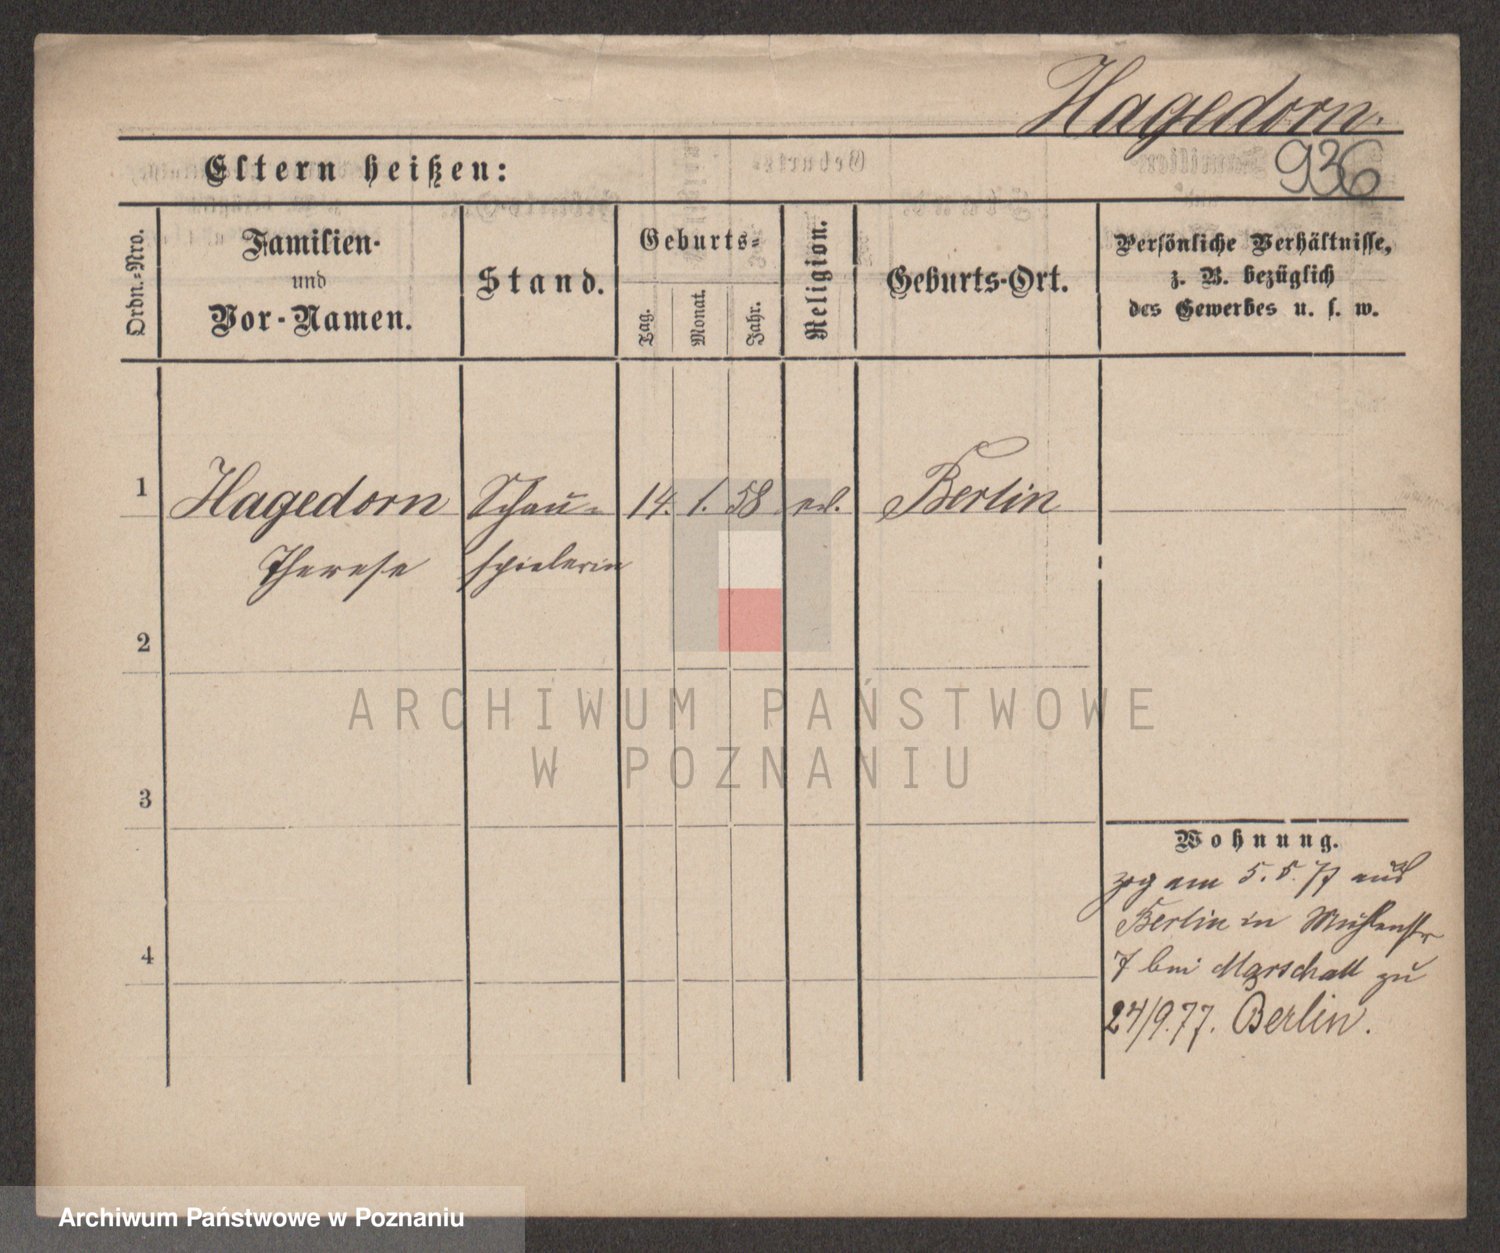 Hagedorn.
936
Eltern heißen:
Ordn.-Nro.
Familien-
und
Vor-Namen.
Stand.
Geburts-
Tag.
Monat.
Jahr.
Religion.
Geburts-Ort.
Persönliche Verhältnisse,
z. B. bezüglich
des Gewerbes u. s. w.
1 Hagedorn Schau- 14. 1. 58 ev. Berlin
Therese spielerin
2
3
4
ARCHIWUM PAŃSTWOWE
W POZNANIU
Wohnung.
zog am 5. 5. 77 aus
Berlin in Mühlenstr
7 bei Marschall zu
24/9.77. Berlin.
Archiwum Państwowe w Poznaniu